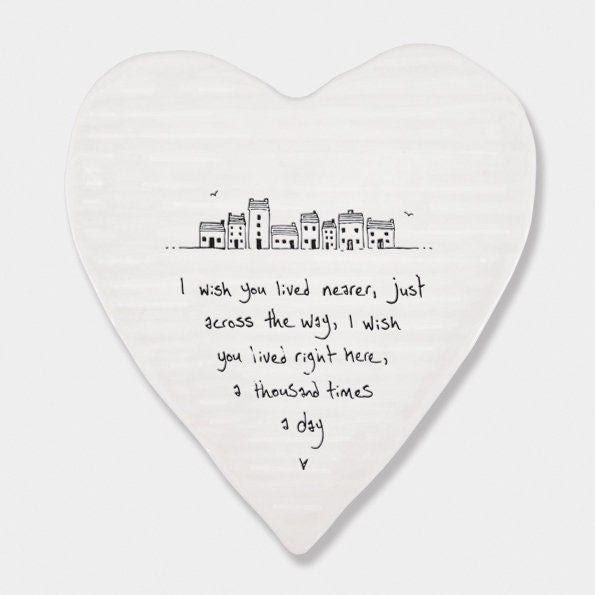 I wish you lived nearer, just
across the way, I wish
you lived right here,
a thousand times
a day